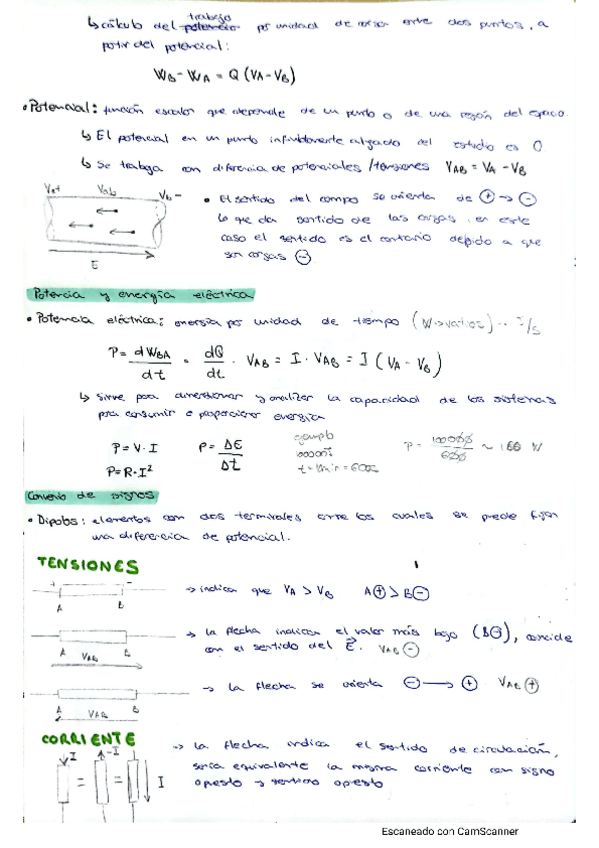 ↳ cálculo del trabajo por unidad de entre dos puntos, a
partir del potencial:
WB - WA = Q (VA - VB)
• Potencial: función escalar que depende de un punto o de una región del espacio.
↳ El potencial en un punto infinitamente alejado del estudio es 0
↳ Se trabaja con diferencia de potenciales / tensiones VAB = VA - VB
VA+ VAB VB -
• El sentido del campo se orienta de ⊕ → ⊖
lo que da sentido de las cargas, en este
caso el sentido es el contrario debido a que
son cargas ⊖
E
Potencia y energía eléctrica
• Potencia eléctrica: energía por unidad de tiempo (W → vatios) J/s
P = dWBA / dt = dQ / dt · VAB = I · VAB = I (VA - VB)
↳ Sirve para dimensionar y analizar la capacidad de los sistemas
para consumir o proporcionar energía
P = V · I P = ΔE / Δt
P = R · I²
ejemplo
t = 10 min = 600s
Convenio de signos
• Dipolos: elementos con dos terminales entre los cuales se puede fijar
una diferencia de potencial.
TENSIONES
+ -
A B
→ indica que VA > VB A⊕ > B⊖
A VAB B
→ la flecha indica el valor más bajo (B⊖), coincide
con el sentido del E⃗. VAB ⊖
A VAB B
→ la flecha se orienta ⊖ → ⊕ VAB ⊕
CORRIENTE
I = -I = I
→ la flecha indica el sentido de circulación,
sería equivalente la misma corriente con signo
opuesto y sentido opuesto
Escaneado con CamScanner